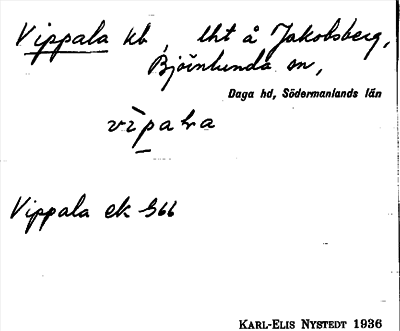 Vippala kb, lht å Jakobsberg,
Björnlunda sn,
Daga hd, Södermanlands län
Vippala ek S66
KARL-ELIS NYSTEDT 1936